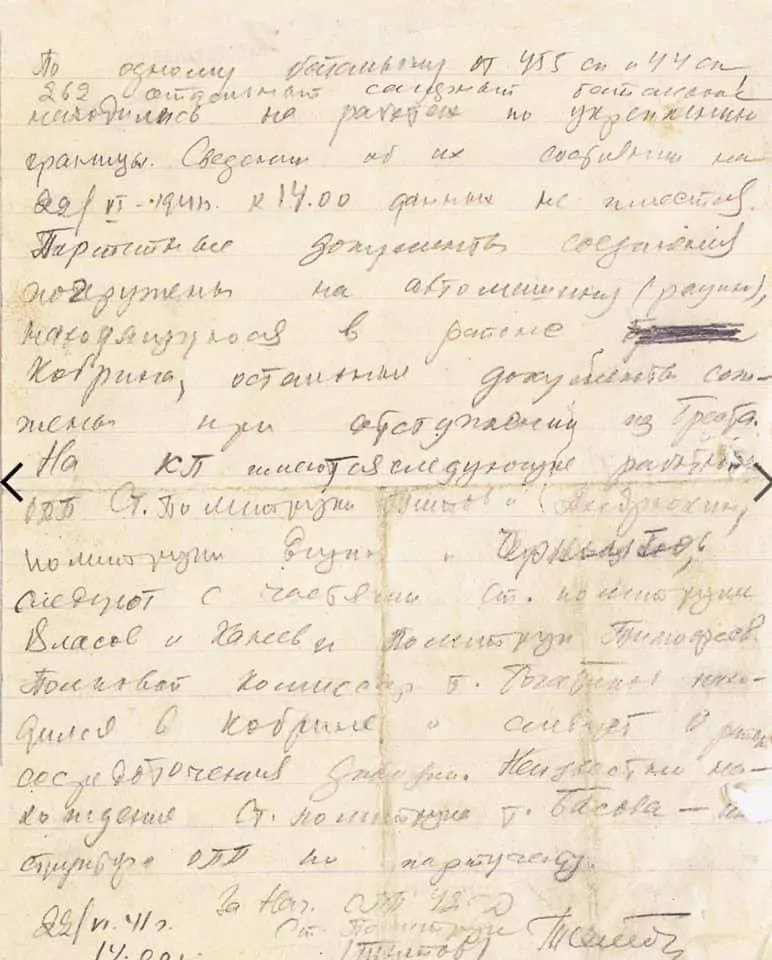 По одному батальону от 455 сп и 44 сп
262 отдельный саперный батальон
находились на работах по укреплению
границы. Сведении об их состоянии на
22/VI-1941г. к 14.00 данных не имеется.
Партийные документы соединения
погружены на автомашину (рацию),
находящуюся в районе
Кобрина, остальные документы сож-
жены при отступлении из Бреста.
На КП имеются следующие работники
ОПП Ст. Политруки и
политруки и
следуют с частями ст. политруки
Власов и и политрук Тимофеев.
Полковой комиссар т. нахо-
дился в Кобрине и следует в район
сосредоточения дивизии. Неизвестно на-
хождение Ст. политрука т. Басова —
ОПП по партучету.
За Нач. ОПП 42 СД
22/VI.41г. Ст. Политрук
14.00